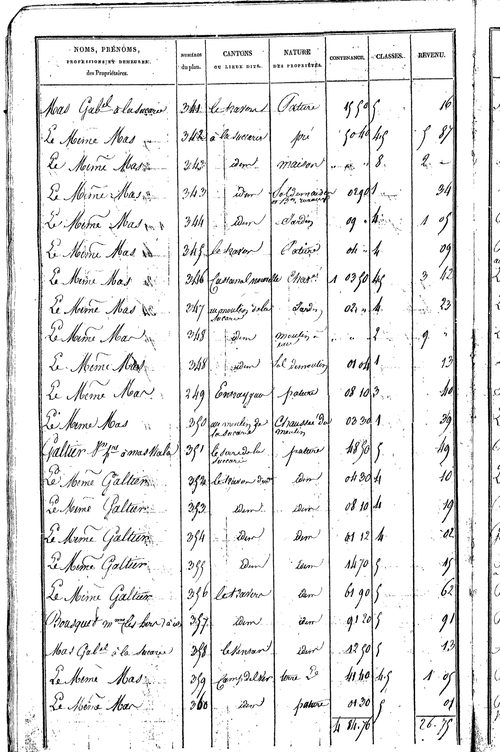 NOMS, PRÉNOMS, PROFESSIONS ET DEMEURES des Propriétaires. NUMÉROS du plan. CANTONS OU LIEUX DITS. NATURE DES PROPRIÉTÉS. CONTENANCE. CLASSES. REVENU.
Mas Gab.el à la sucarie 341 Pature 15 50 5 16
Le Même Mas 342 à la sucarie pré 50 40 4,5 5 87
Le Même Mas 343 idem maison " " 8 2 "
Le Même Mas 343 idem 02 90 1 34
Le Même Mas 344 idem Jardin 09 " 4 1 05
Le Même Mas 345 Pature 04 " 4 09
Le Même Mas 346 1 03 50 4,5 3 42
Le Même Mas 347 au moulin de la sucarie Jardin 02 " 4 23
Le Même Mas 348 idem moulin à eau " " 2 9 "
Le Même Mas 348 idem Sol du moulin 01 04 1 13
Le Même Mas 249 pature 08 10 3 40
Le Même Mas 350 au moulin de la sucarie Chaussée du moulin 03 30 1 39
Galtier 351 sucarie pature 48 50 5 49
Le Même Galtier 352 idem 04 30 4 10
Le Même Galtier 353 idem idem 08 10 4 19
Le Même Galtier 354 idem idem 01 12 4 02
Le Même Galtier 355 idem idem 14 70 5 15
Le Même Galtier 356 idem 61 90 5 62
Bousquet 357 idem idem 91 20 5 91
Mas Gab.el à la sucarie 358 idem 12 50 5 13
Le Même Mas 359 terre 41 40 4,5 1 05
Le Même Mas 360 idem pature 01 30 5 01
4 84.76 26.75